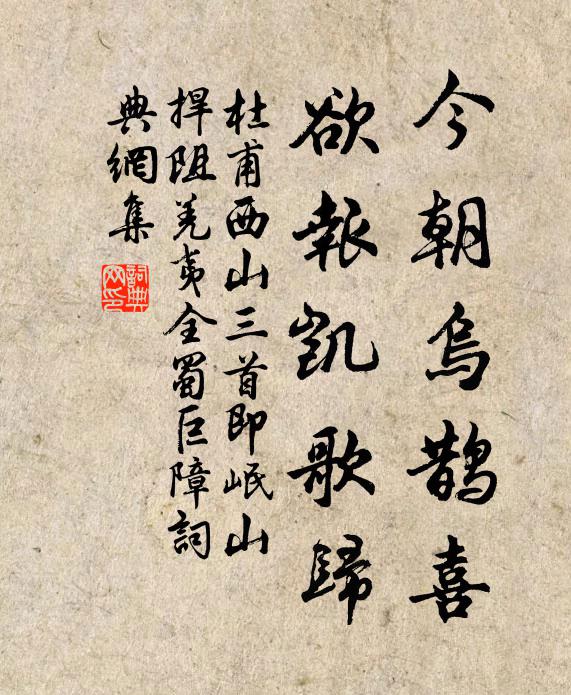 今朝烏鵲喜
欲報凱歌歸
杜甫西山三首即岷山
捍阻羌夷全蜀巨障詞
典網集
詞典網印